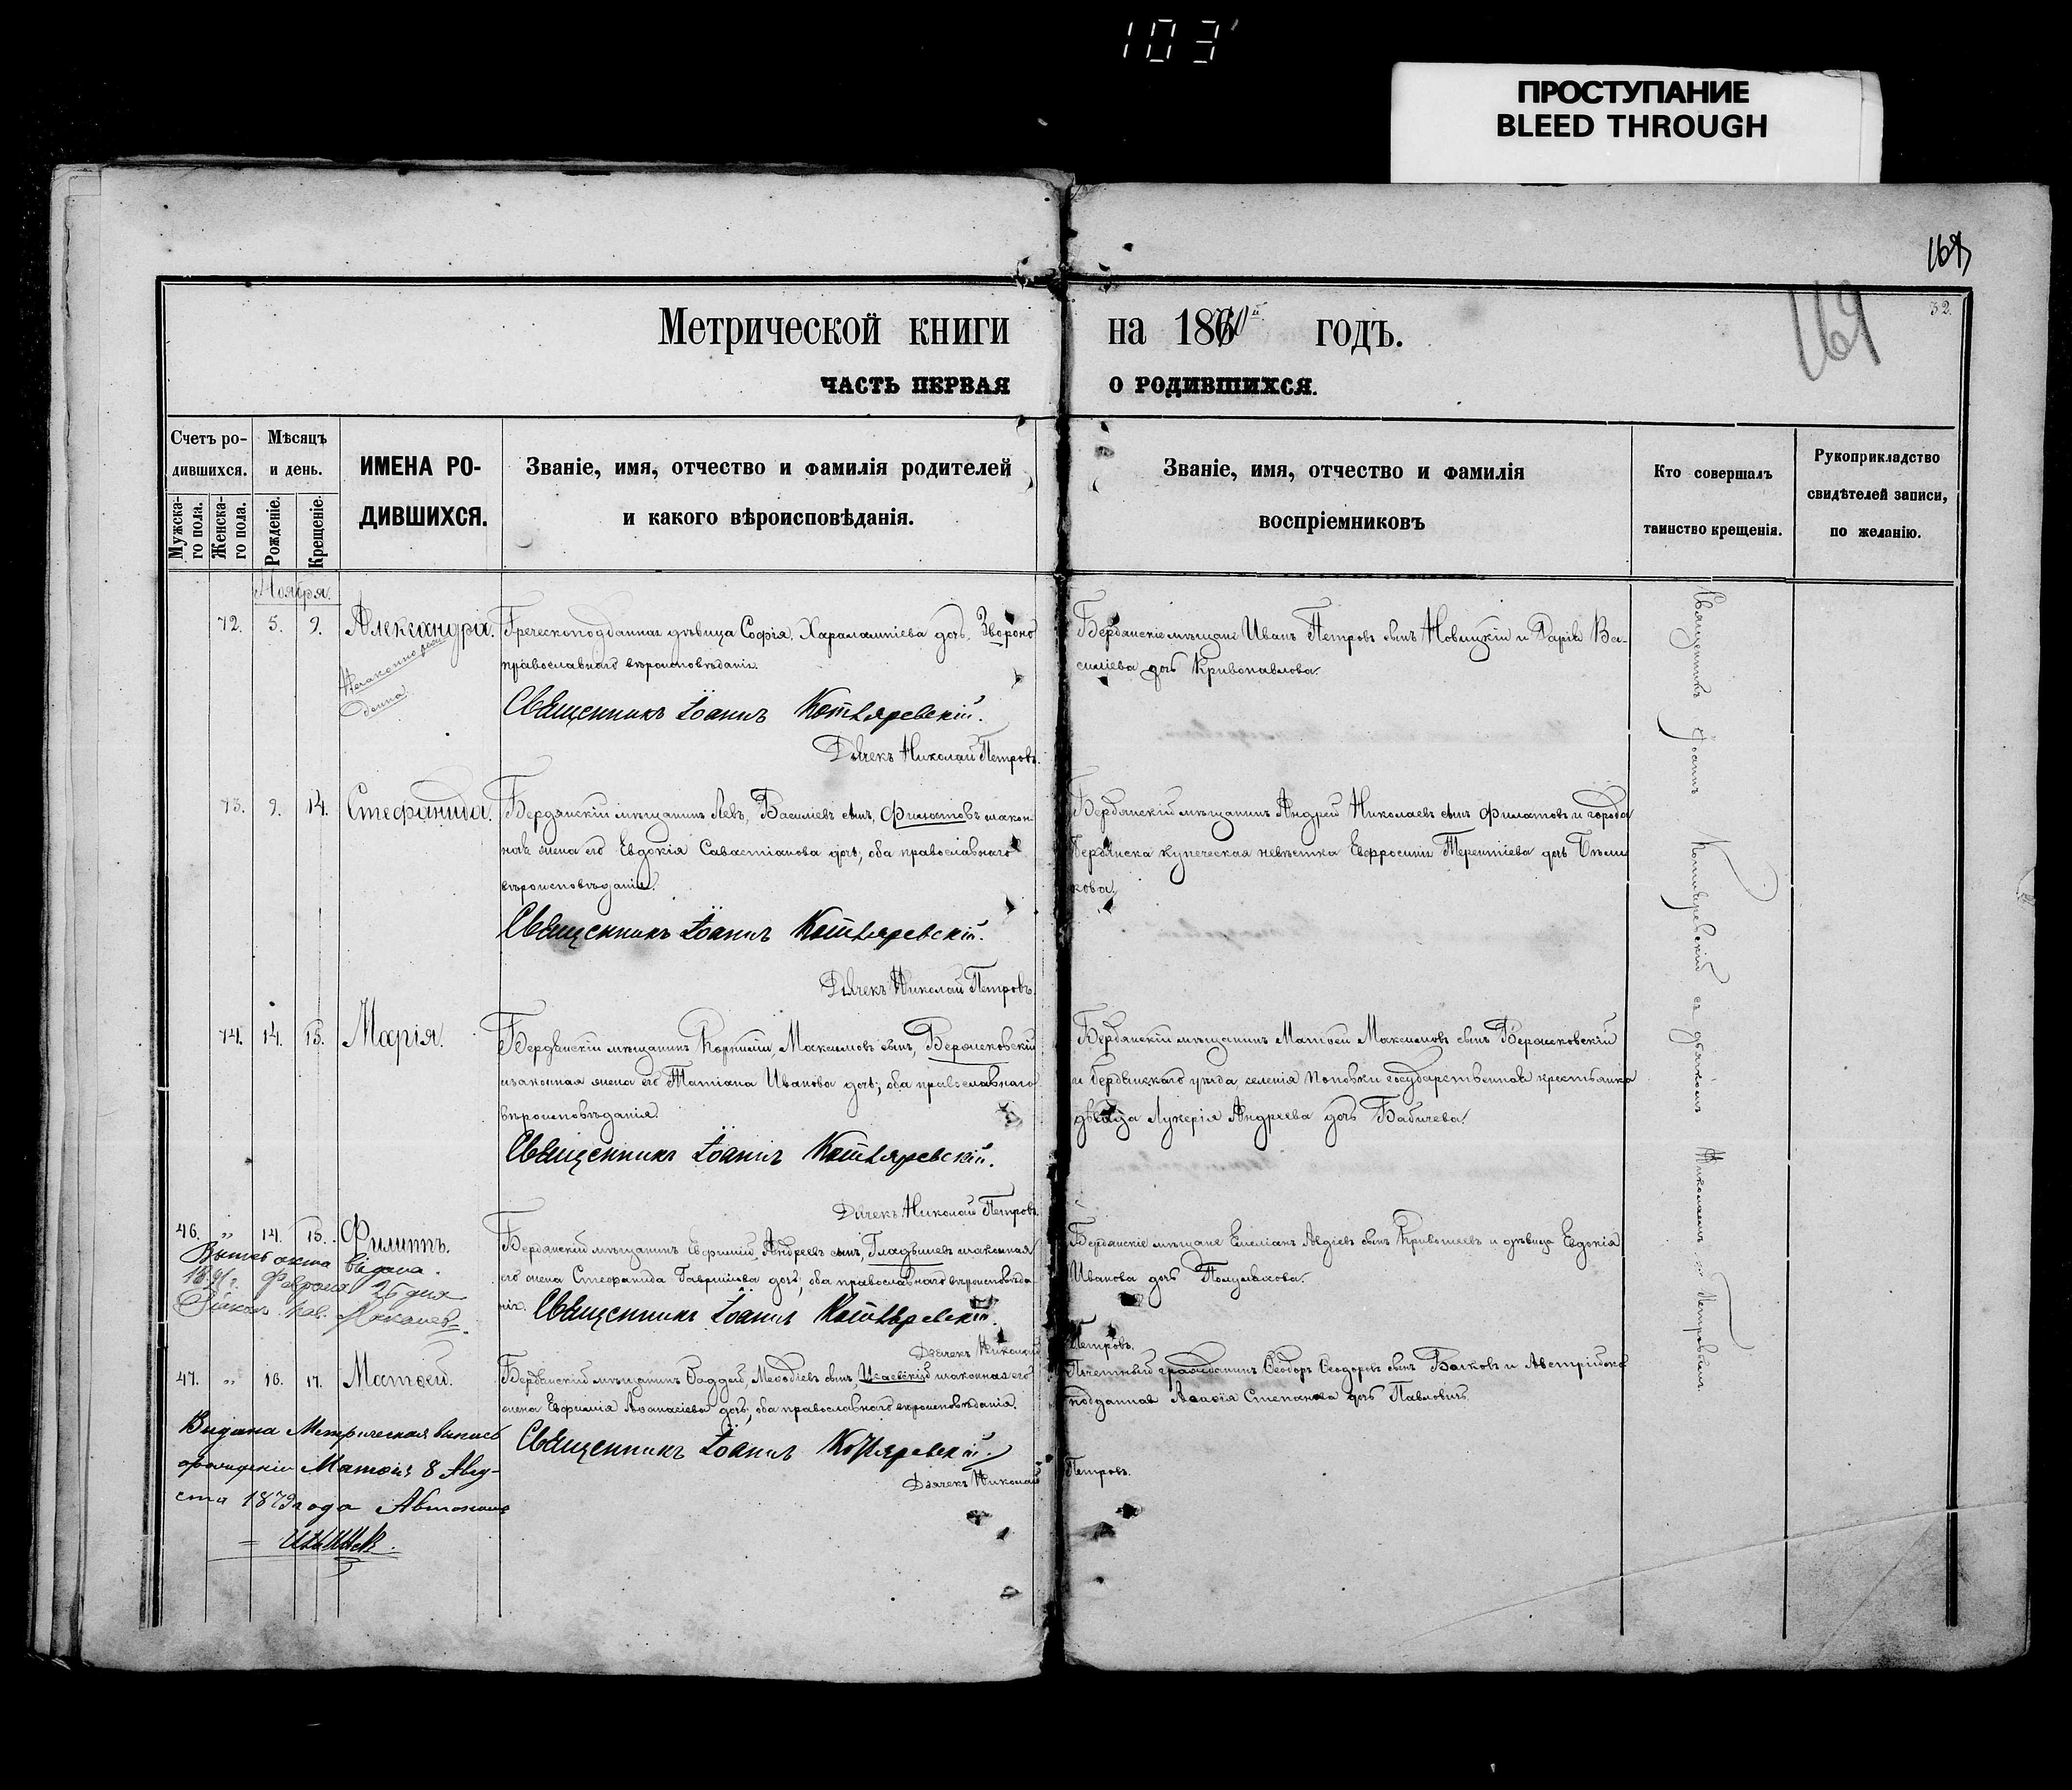 103
ПРОСТУПАНИЕ
BLEED THROUGH
169
169
32.
Метрической книги на 1860й годъ.
ЧАСТЬ ПЕРВАЯ О РОДИВШИХСЯ.
Счетъ ро-
дившихся.
Мужска-
го пола.
Женска-
го пола.
Мѣсяцъ
и день.
Рожденіе.
Крещеніе.
ИМЕНА РО-
ДИВШИХСЯ.
Званіе, имя, отчество и фамилія родителей
и какого вѣроисповѣданія.
Званіе, имя, отчество и фамилія
воспріемниковъ
Кто совершалъ
таинство крещенія.
Рукоприкладство
свидѣтелей записи,
по желанію.
Ноября.
72. 5. 9. Александра.
Незаконнорож-
денна
Греческоподданная дѣвица Софія, Харалампіева дочь,
православнаго вѣроисповѣданія.
Священникъ Іоаннъ Котляревскій.
Дьячекъ Николай Петровъ.
Бердянскіе мѣщане Иванъ Петровъ сынъ Новицкій и Дарія Ва-
силіева дочь Кривопавлова.
73. 9. 14. Стефанида.
Бердянскій мѣщанинъ Левъ, Василіевъ сынъ, Филатовъ и закон-
ная жена его Евдокія Савастіанова дочь; оба православнаго
вѣроисповѣданія.
Священникъ Іоаннъ Котляревскій.
Дьячекъ Николай Петровъ.
Бердянскій мѣщанинъ Андрей Николаевъ сынъ Филатовъ и города
Бердянска купеческая невѣстка Евфросинія Терентіева дочь
кова.
74. 14. 15. Марія.
Бердянскій мѣщанинъ Корнилій, Максимовъ сынъ,
и законная жена его Татіана Иванова дочь; оба православнаго
вѣроисповѣданія.
Священникъ Іоаннъ Котляревскій.
Дьячекъ Николай Петровъ.
Бердянскій мѣщанинъ Матвей Максимовъ сынъ
и Бердянскаго уѣзда, селенія Поповки государственная крестьянка
дѣвица Лукерія Андреева дочь Бабичева.
46. „ 14. 15. Филиппъ.
Бердянскій мѣщанинъ Евфимій, Андреевъ сынъ, Гладышевъ и законная
его жена Стефанида Гавриилова дочь; оба православнаго вѣроисповѣда-
нія. Священникъ Іоаннъ Котляревскій.
Дьячекъ Николай Петровъ.
Бердянскіе мѣщане Емеліанъ Авдіевъ сынъ Кривошеевъ и дѣвица Евдокія
Иванова дочь
выдана.
Февраля 26 дня
47. „ 16. 17. Матвей.
Бердянскій мѣщанинъ Фаддей, Меѳодіевъ сынъ, Исаевскій и законная его
жена Евфимія Аѳанасіева дочь; оба православнаго вѣроисповѣданія.
Священникъ Іоаннъ Котляревскій.
Дьячекъ Николай Петровъ.
Почетный гражданинъ Ѳеодоръ Ѳеодоровъ сынъ и Австрійско-
подданная Степанова дочь Павловичъ
Выдана Метрическая выпись
о рожденіи Матвея 8 Авгу-
ста 1879 года
Священникъ Іоаннъ Котляревскій съ дьячкомъ Николаемъ Петровымъ.